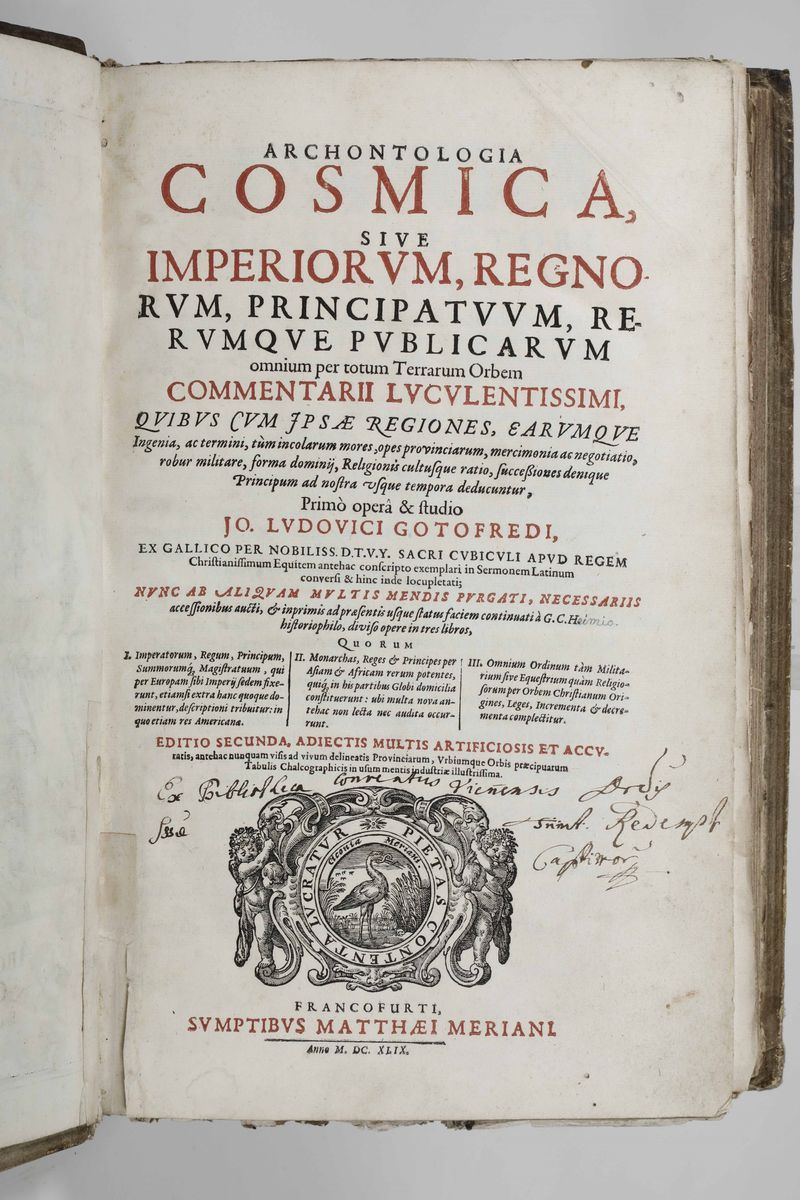 ARCHONTOLOGIA
COSMICA,
SIVE
IMPERIORVM, REGNO-
RVM, PRINCIPATVVM, RE-
RVMQVE PVBLICARVM
omnium per totum Terrarum Orbem
COMMENTARII LVCVLENTISSIMI,
QVIBVS CVM IPSÆ REGIONES, EARVMQVE
Ingenia, ac termini, tùm incolarum mores, opes provinciarum, mercimonia ac negotiatio,
robur militare, forma dominij, Religionis cultuſque ratio, ſucceßiones denique
Principum ad noſtra vſque tempora deducuntur,
Primò operâ & ſtudio
JO. LVDOVICI GOTOFREDI,
EX GALLICO PER NOBILISS. D.T.V.Y. SACRI CVBICVLI APVD REGEM
Chriſtianiſſimum Equitem antehac conſcripto exemplari in Sermonem Latinum
converſi & hinc inde locupletati;
NVNC AB ALIQVAM MVLTIS MENDIS PVRGATI, NECESSARIIS
acceſſionibus aucti, & inprimis ad præſentis uſque ſtatus faciem continuati à G. C. Heimio.
hiſtoriophilo, diviſo opere in tres libros,
QUORUM
I. Imperatorum, Regum, Principum,
Summorumq, Magiſtratuum, qui
per Europam ſibi Imperij ſedem fixe-
runt, etiamſi extra hanc quoque do-
minentur, deſcriptioni tribuitur: in
quo etiam res Americana.
II. Monarchas, Reges & Principes per
Aſiam & Africam rerum potentes,
quiq, in his partibus Globi domicilia
conſtituerunt: ubi multa nova an-
tehac non lecta nec audita occur-
runt.
III. Omnium Ordinum tàm Milita-
rium ſive Equeſtrium quàm Religio-
ſorum per Orbem Chriſtianum Ori-
gines, Leges, Incrementa & decre-
menta complectitur.
EDITIO SECUNDA, ADIECTIS MULTIS ARTIFICIOSIS ET ACCV-
ratis, antehac nunquam viſis ad vivum delineatis Provinciarum, Vrbiumque Orbis præcipuarum
Tabulis Chalcographicis in uſum mentis induſtriæ illuſtriſſima.
Ex Bibliotheca Conventus Vienensis Ordis
Ssae Redempt
Captivor
PIETAS CONTENTA LUCRATVR
Ciconia Meriana
FRANCOFURTI,
SVMPTIBVS MATTHÆI MERIANI.
Anno M. DC. XLIX.